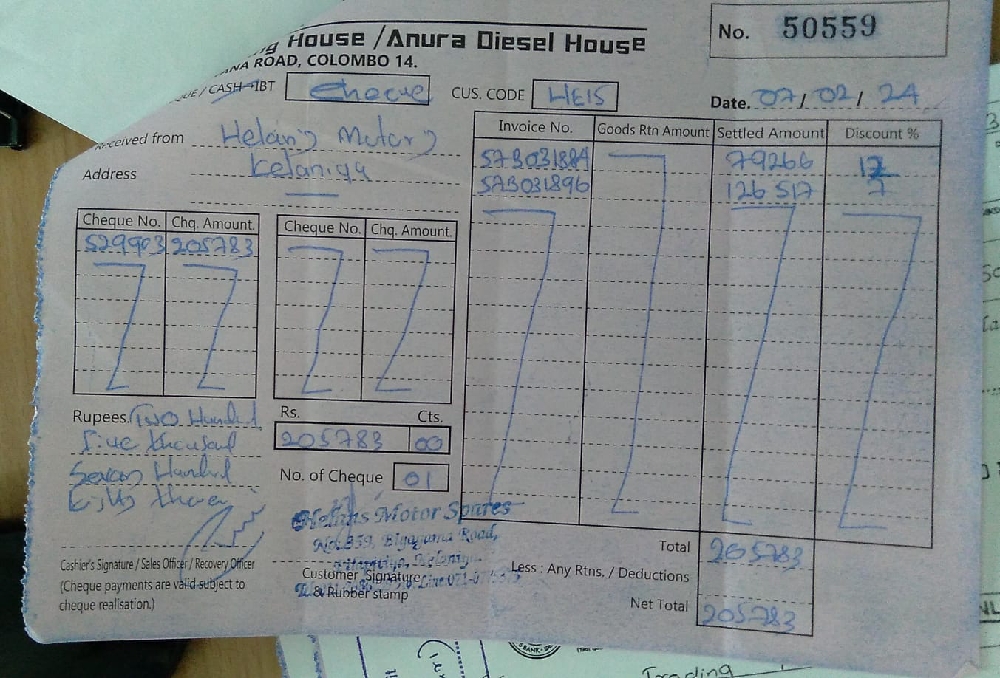 House / Anura Diesel House
ROAD, COLOMBO 14.
No. 50559
CASH IBT Cheque
CUS. CODE HE15
Date. 07/02/24
from Helans Motors
Address Kelaniya
Invoice No. Goods Rtn Amount Settled Amount Discount %
S7B031884 79266 12
S7B031896 126 517 7
Cheque No. Chq. Amount. Cheque No. Chq. Amount.
529993 205783
Rupees. Two Hundred
five thousand
Seven Hundred
Eighty three
Rs. Cts.
205783 00
No. of Cheque 01
Helans Motor Spares
Road,
Cashier's Signature / Sales Officer / Recovery Officer
(Cheque payments are valid subject to
cheque realisation.)
Customer Signature
& Rubber stamp
Total 205783
Less : Any Rtns, / Deductions
Net Total 205783
Trading